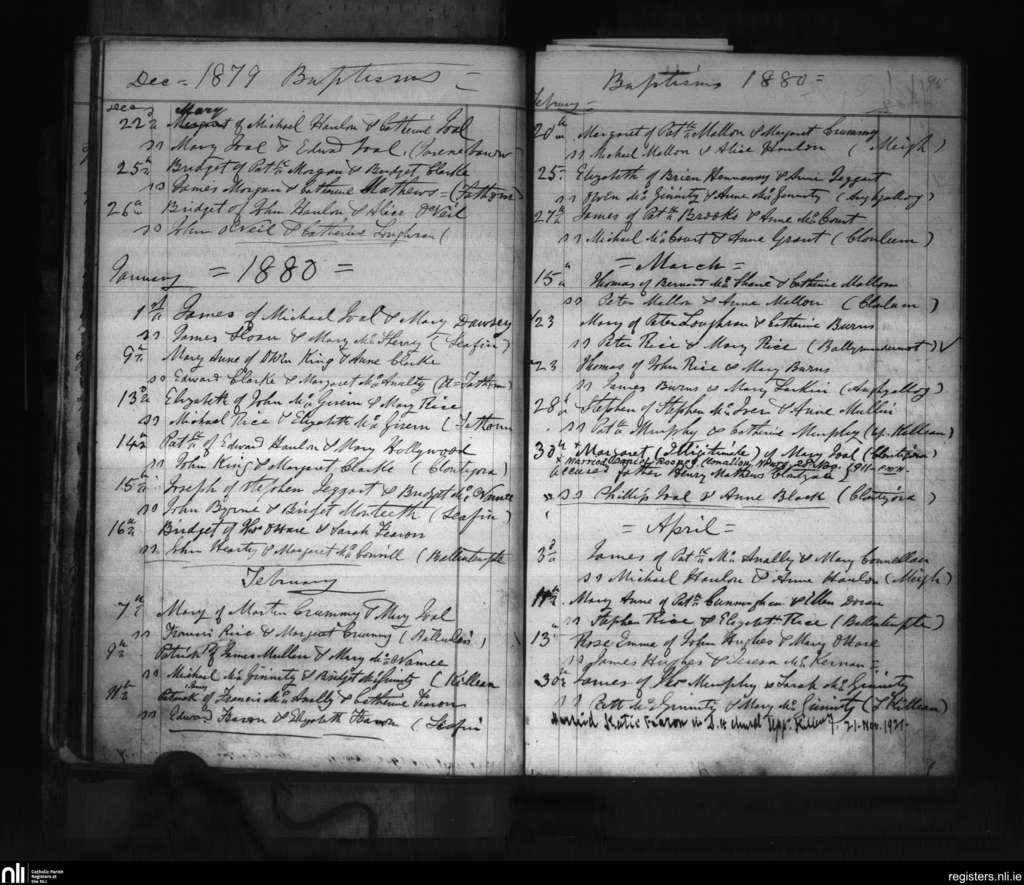 Dec = 1879 Baptisms =
Dec
Mary
22 Margaret of Michael Hanlon & Catherine Joal
ss Mary Joal & Edward Joal
25 Bridget of Patk Morgan & Bridget Clarke
ss James Morgan & Catherine Mathews = (Fathom)
26 Bridget of John Hanlon & Alice O'Neil
ss John O'Neil & Catherine Loughran (
January = 1880 =
1st James of Michael Joal & Mary
ss James Sloan & Mary (Seafin)
9 Mary Anne of Owen King & Anne Clarke
ss Edward Clarke & Margaret McAnalty
13 Elizabeth of John & Mary Rice
ss Michael Rice & Elizabeth
14 Patk of Edward Hanlon & Mary Hollywood
ss John King & Margaret Clarke (Clontigora)
15 Joseph of Stephen Leggart & Bridget McNamee
ss John Byrne & Bridget Monteeth (Seafin)
16 Bridget of Thos O'Hare & Sarah Fearon
ss John Hearty & Margaret McConvill
February
7 Mary of Martin Crummy & Mary Joal
ss Francis Rice & Margaret Crummy
9 Patrick of James Mullen & Mary McNamee
ss Michael McGinnity & Bridget McGinity (Killean
11 Patrick of Francis McAnally & Catherine Fearon
ss Edward Fearon & Elizabeth Fearon (Seafin
Baptisms 1880 =
February =
20 Margaret of Patk Mallon & Margaret Crummy
ss Michael Mallon & Alice Hanlon (Meigh)
25 Elizabeth of Brien Hennaway & Anne Taggart
ss Owen McGinnity & Anne McGinnity (Aughyalloy)
27 James of Patk Brooks & Anne McCourt
ss Michael McCourt & Anne Grant (Clonlum)
= March =
15 Thomas of Bernard McShane & Catherine Mallon
ss Peter Mallon & Anne Mallon
23 Mary of Peter Loughran & Catherine Burns
ss Peter Rice & Mary Rice
23 Thomas of John Rice & Mary Burns
ss James Burns & Mary Larkin
28 Stephen of Stephen & Anne Mullin
ss Patk Murphy & Catherine Murphy (Up. Killean)
30 Margaret (Illigitimate) of Mary Joal (Clontigora)
Married Daniel Rooney 28 Nov. 1911
accused father Henry Mathews
ss Phillip Joal & Anne Black (Clontigora)
= April =
3d James of Patk McAnally & Mary Connellan
ss Michael Hanlon & Anne Hanlon (Meigh)
11 Mary Anne of Patk Cunningham & Ellen Doran
ss Stephen Rice & Elizabeth Rice
13 Rose Emma of John Hughes & Mary O'Hare
ss James Hughes & Teresa McKernan =
30 James of Thos Murphy & Sarah McGinnity
ss Patt McGinnity & Mary McGinnity
Married Katie Fearon in 21-Nov. 1921-
nli
Catholic Parish
Registers at
the NLI
registers.nli.ie